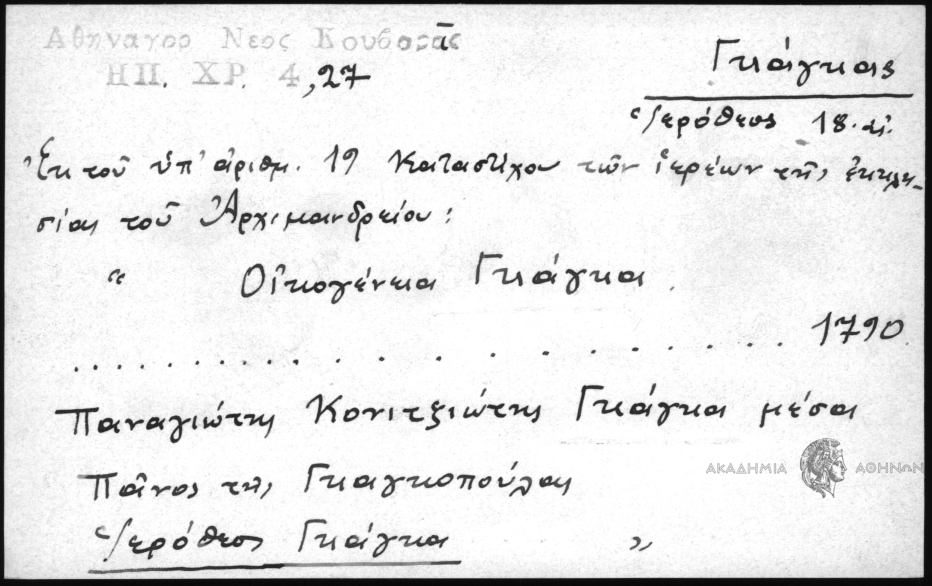 Αθηναγορ Νεος Κουβαρᾶς
ΗΠ. ΧΡ. 4,27
Γκάγκας
Ἱερόθεος 18. αἰ.
Ἐκ τοῦ ὑπ' ἀριθμ. 19 Καταστίχου τῶν ἱερέων τῆς ἐκκλη-
σίας τοῦ Ἀρχιμανδρείου:
“ Οἰκογένεια Γκάγκα.
. . . . . . . . . . . . . . . . . 1790.
Παναγιώτης Κονιτζιώτης Γκάγκα μέσα
Πᾶνος τῆς Γκαγκοπούλας
ΑΚΑΔΗΜΙΑ ΑΘΗΝΩΝ
Ἱερόθεος Γκάγκα ”